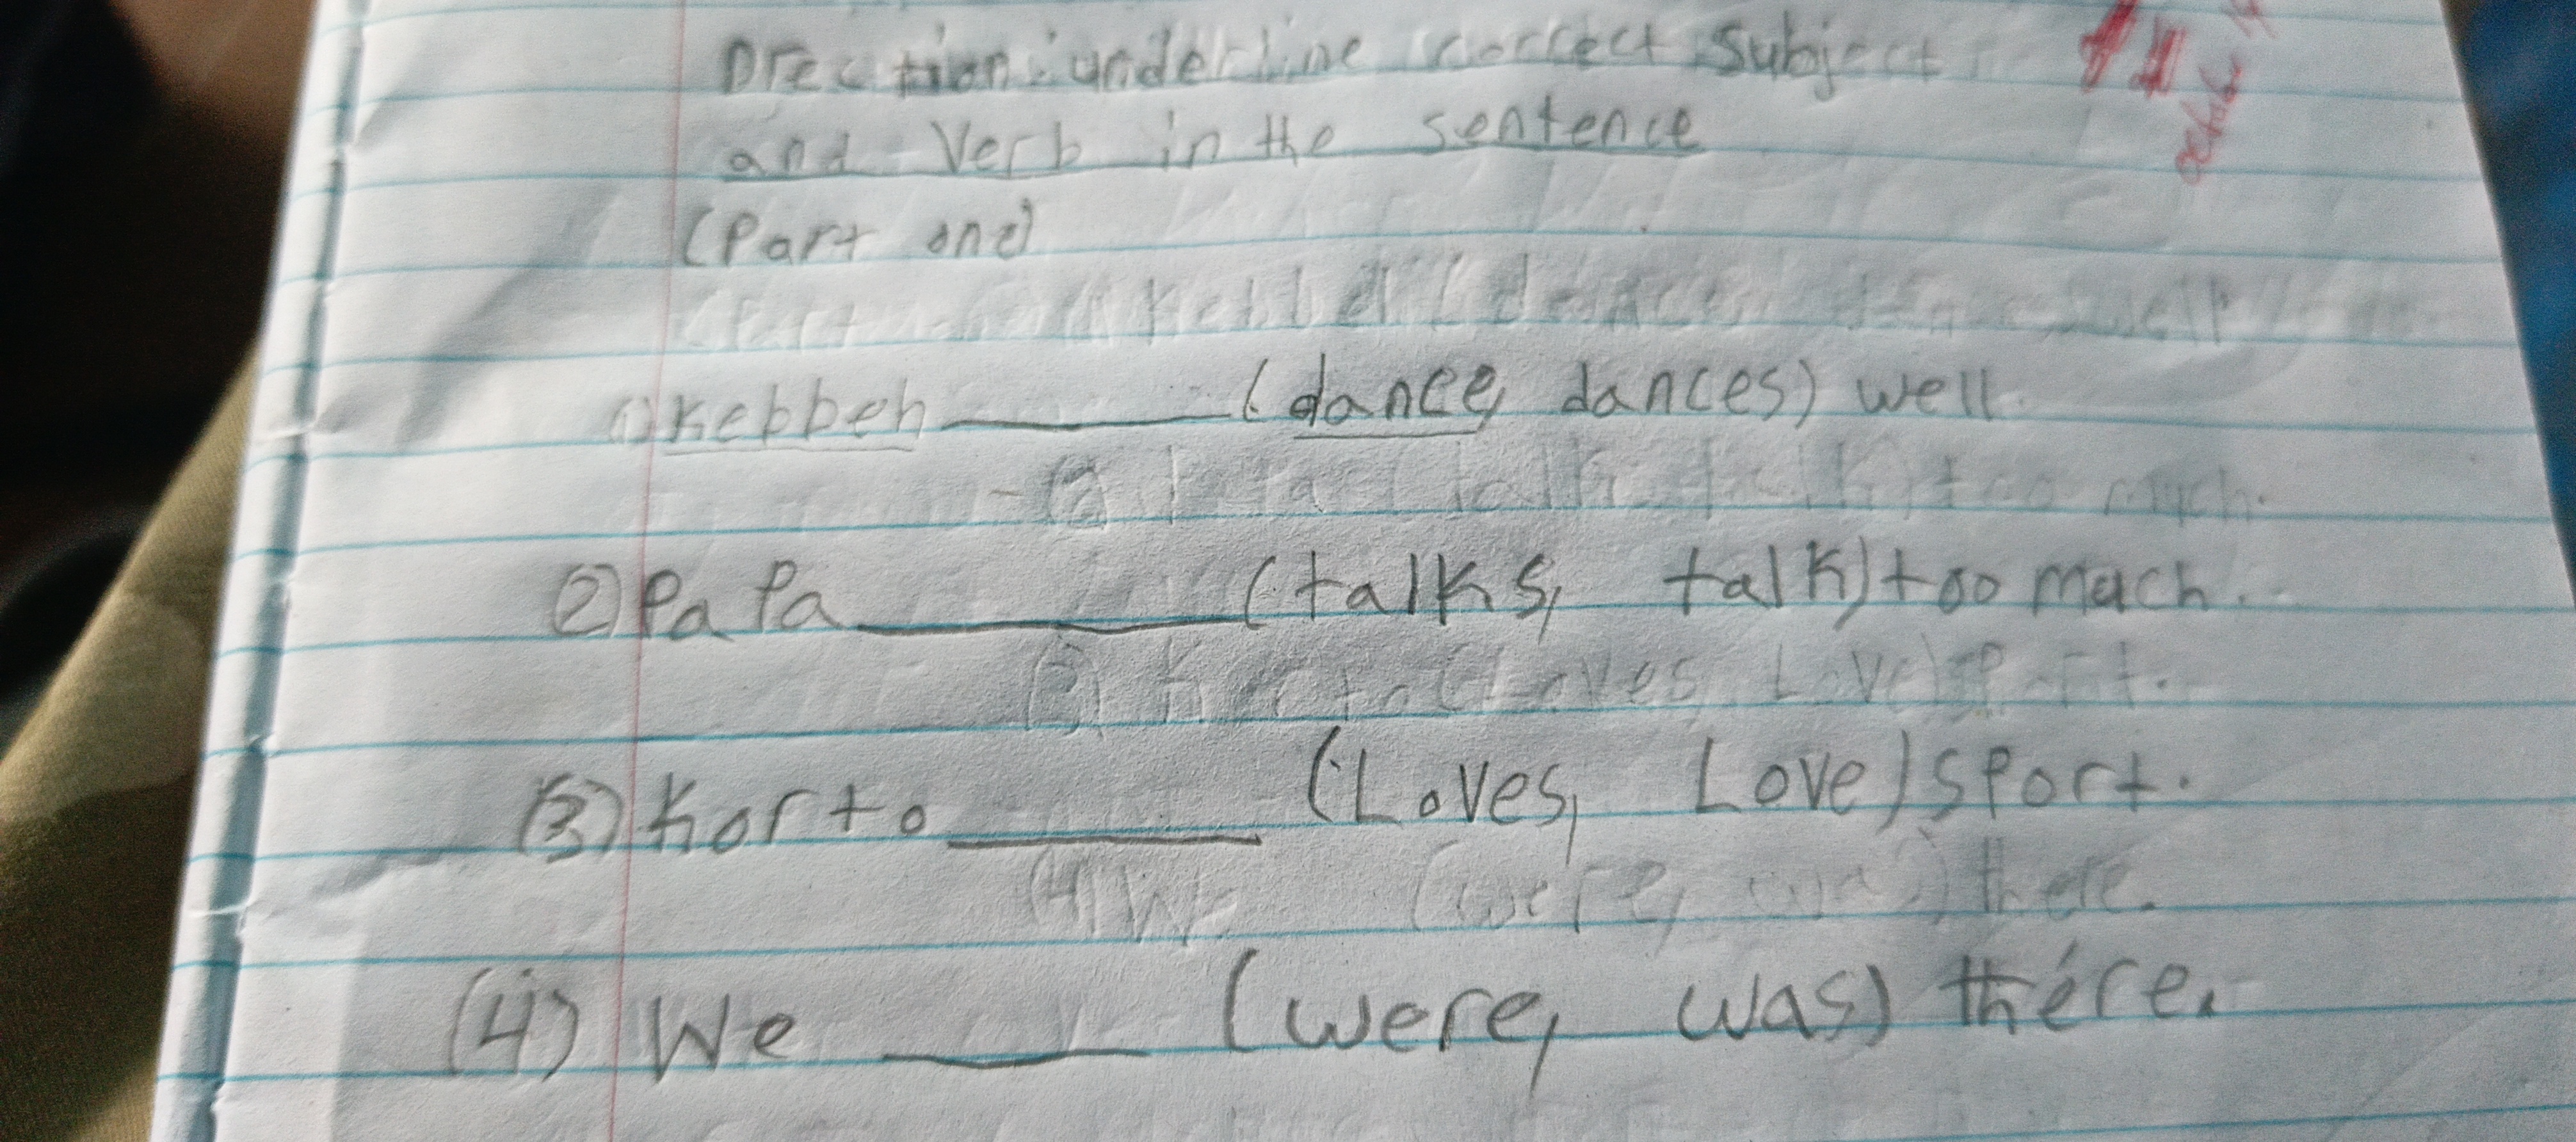 Drection: underline correct Subject
and Verb in the sentence
(Part one)
1) Kebbeh ______ (dance, dances) well.
(2) PaPa ______ (talks, talk) too mach.
(3) Korto ______ (Loves, Love) sport.
(4) We ______ (were, was) there.